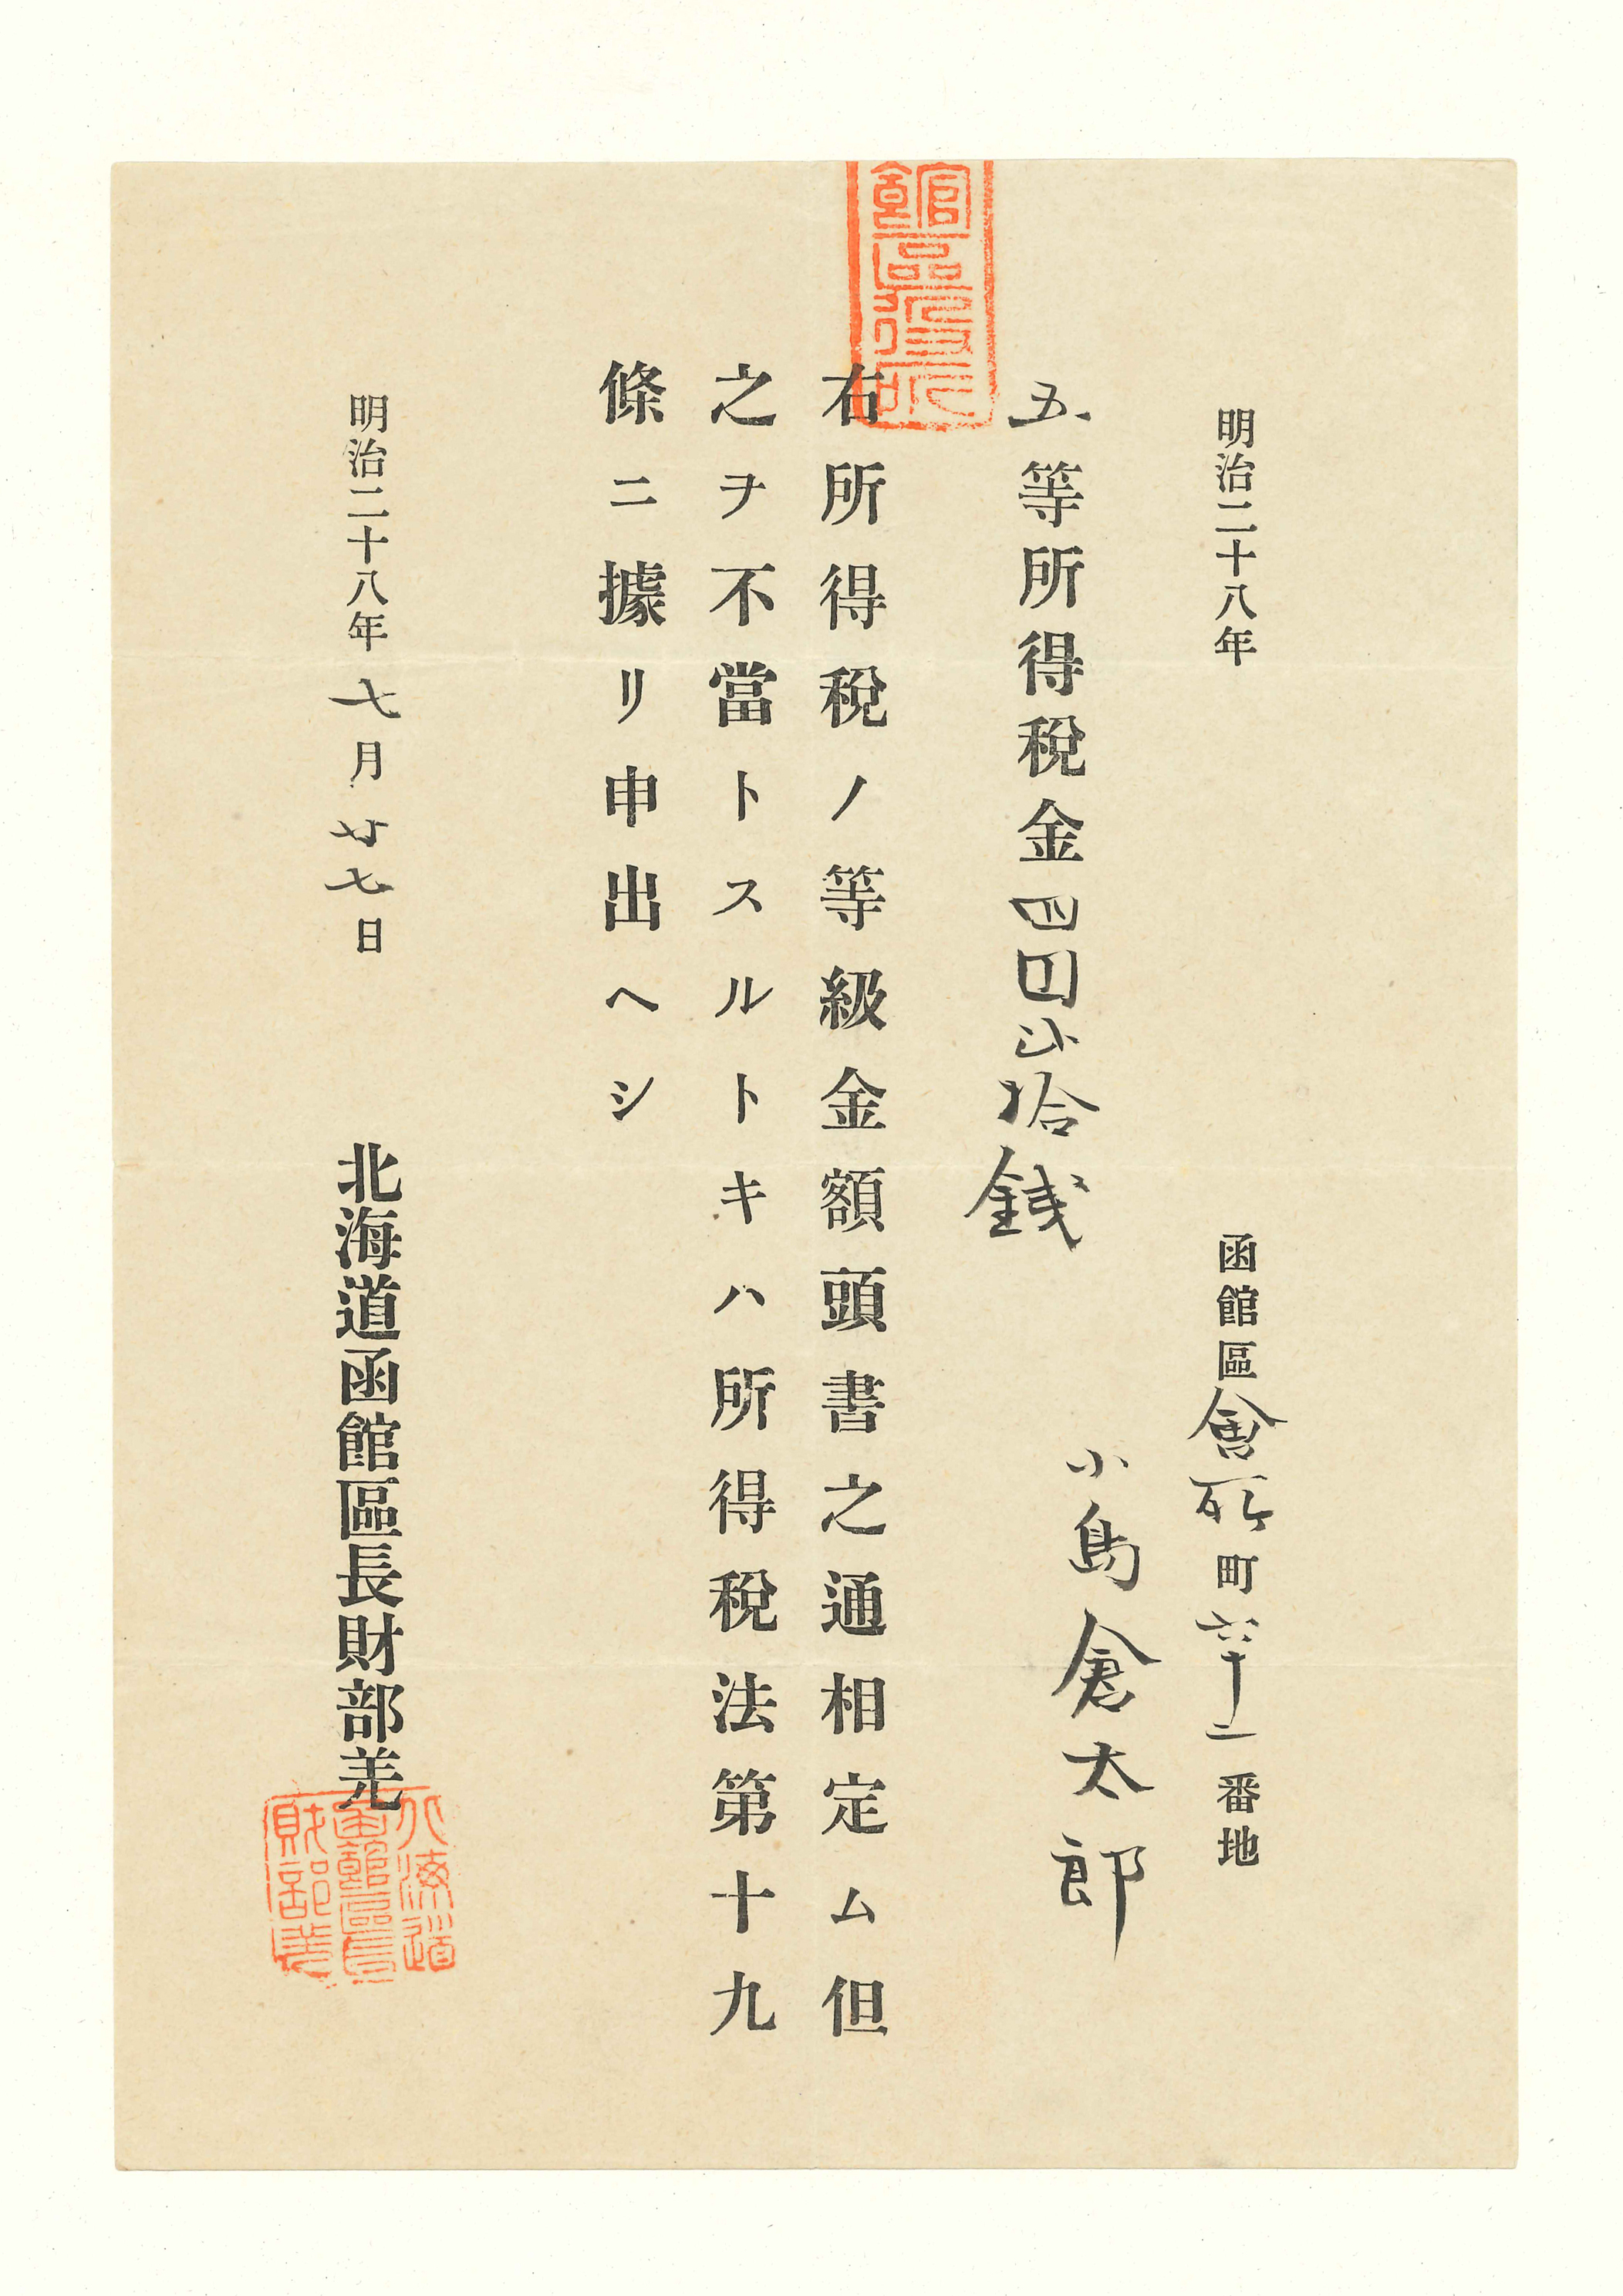 明治二十八年
函館區會所町六十二番地
小島倉太郎
五等所得稅金四円拾銭
右所得稅ノ等級金額頭書之通相定ム但
之ヲ不當トスルトキハ所得稅法第十九
條ニ據リ申出ヘシ
明治二十八年七月廿七日
北海道函館區長財部羌
館區役所
北海道
函館區長
財部羌